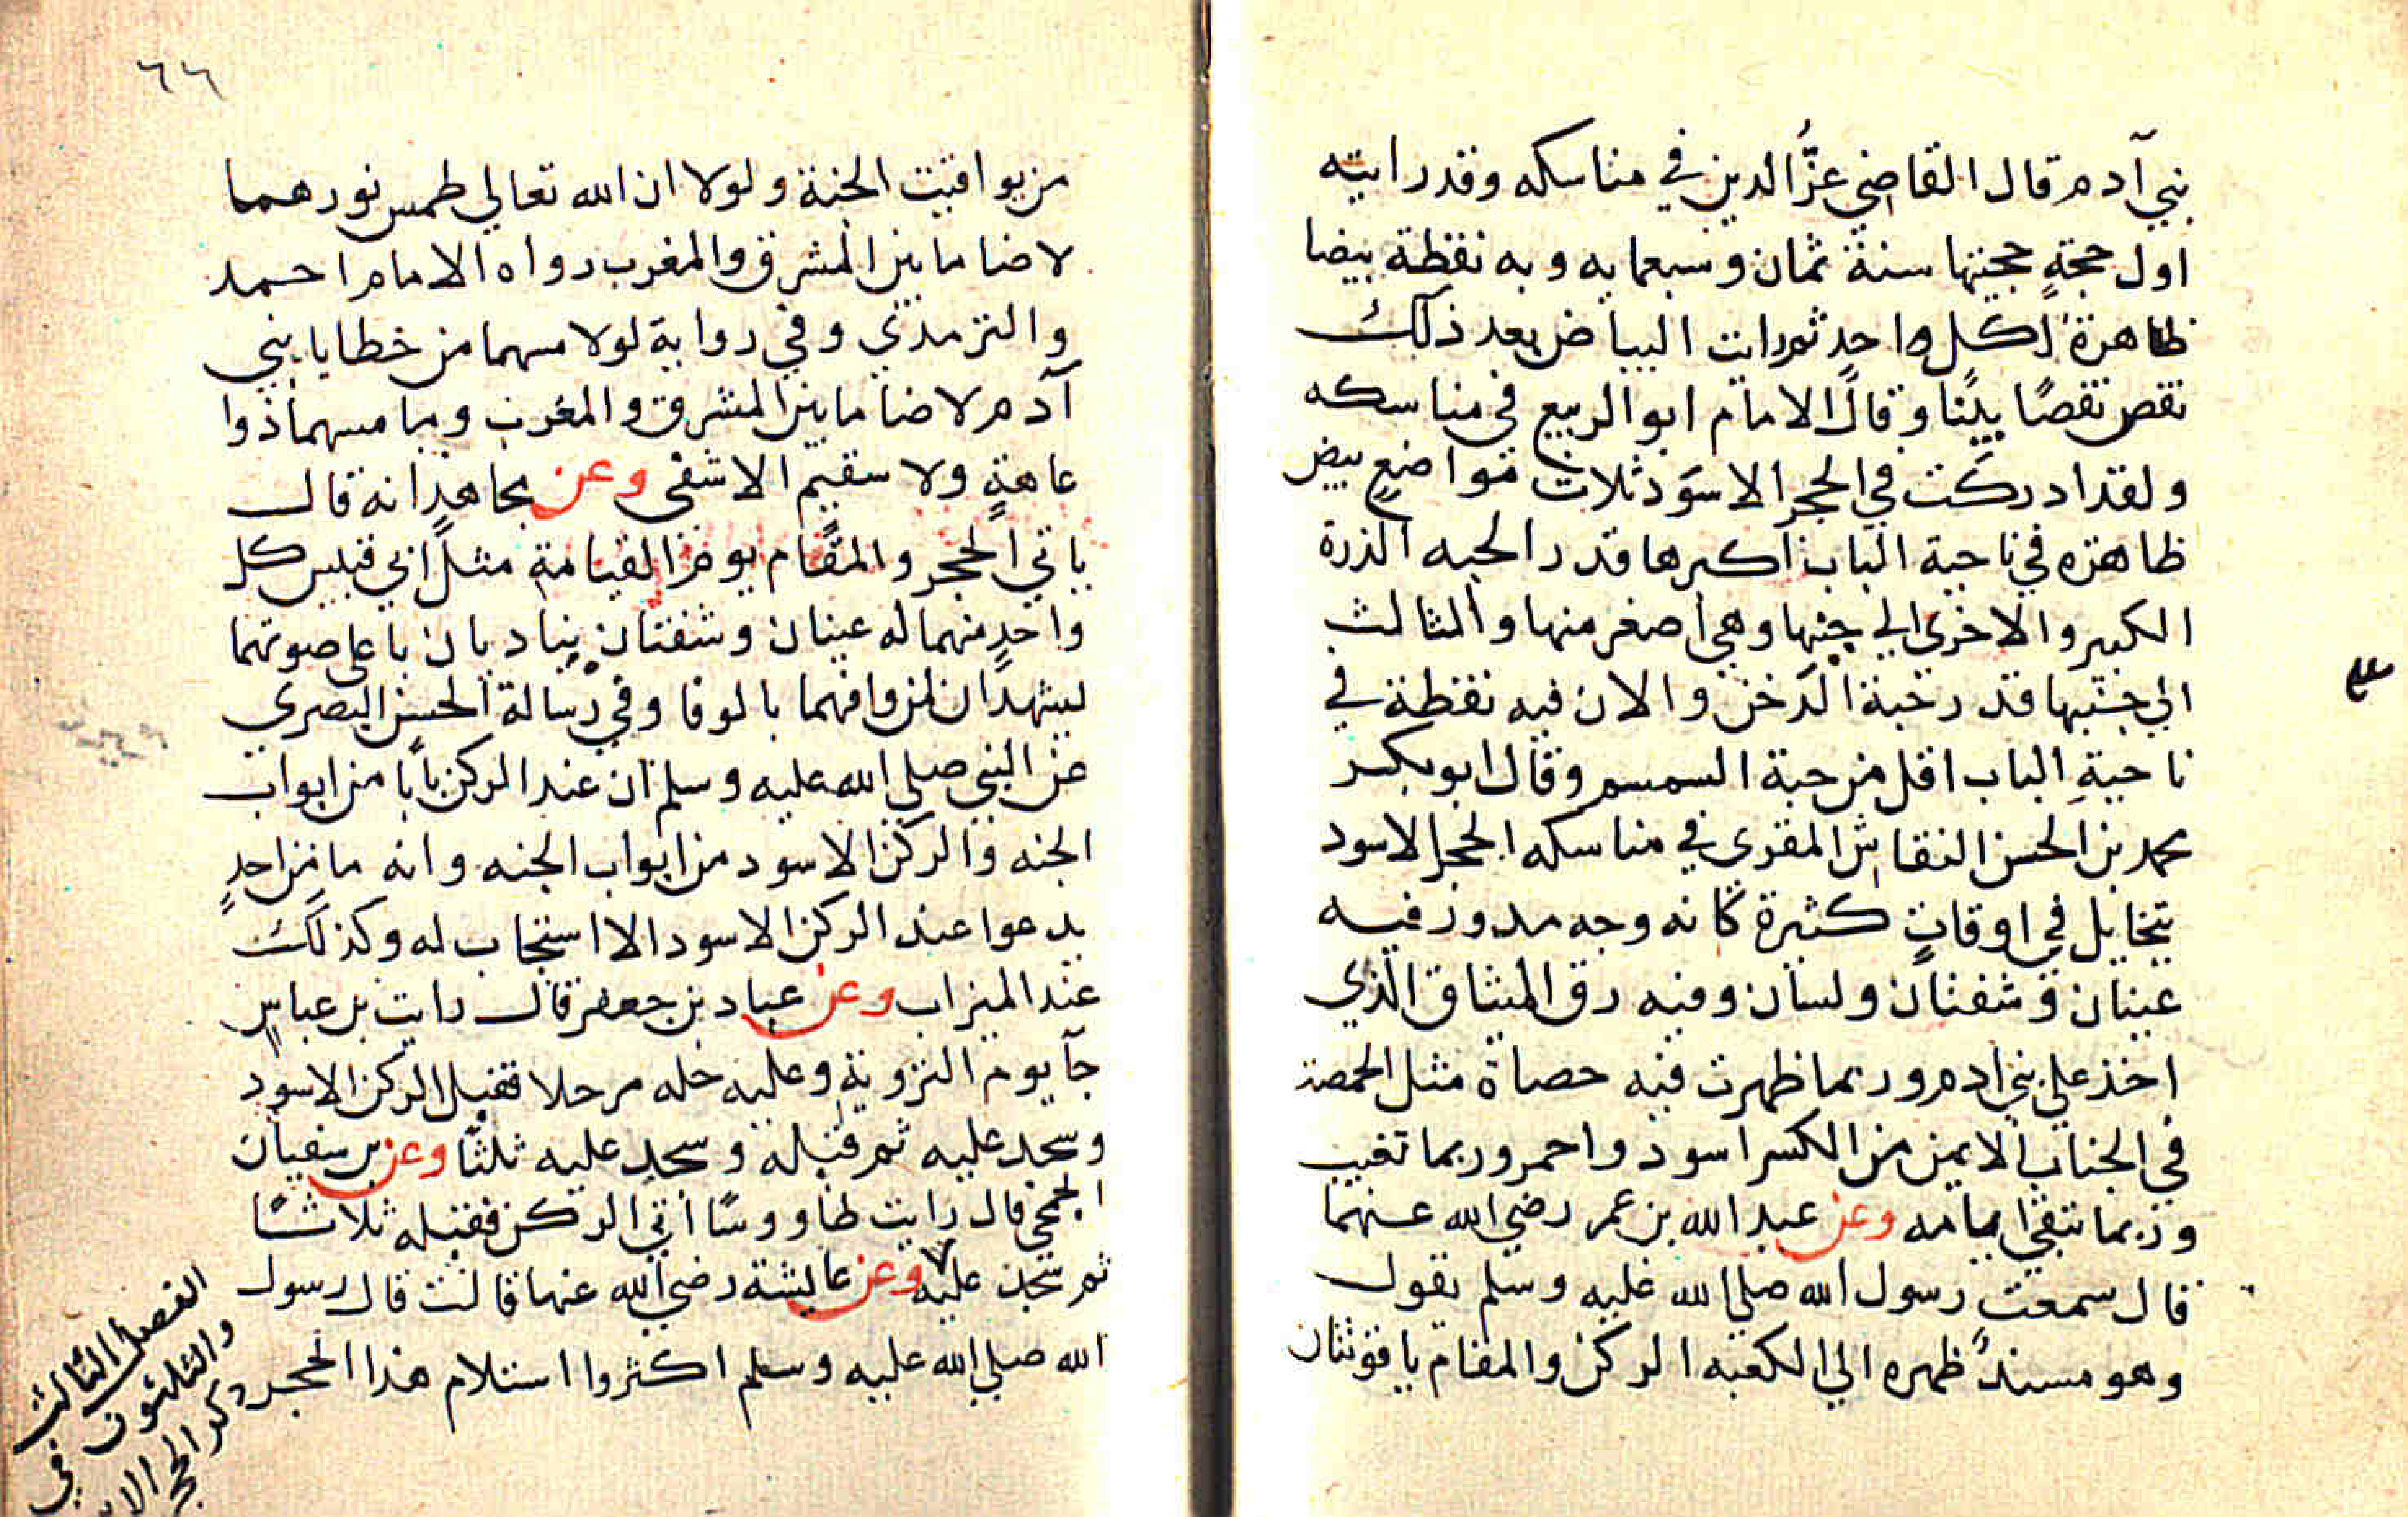 بني آدم قال القاضي عزُّ الدين في مناسكه وقد رايته
اول حجةٍ حججتها سنة ثمان وسبعمايه وبه نقطة بيضا
ظاهرة لكل واحدٍ ثم رايت البياض بعد ذلك
نقص نقصًا بيّنًا وقال الامام ابو الربيع في مناسكه
ولقد ادركت في الحجر الاسود ثلاث مواضع بيض
ظاهره في ناحية الباب اكبرها قدر الحبه الذرة
الكبير والاخرى الي جنبها وهي اصغر منها والثالث
الي جنبها قدر حبة الدخن والان فيه نقطة في
ناحيةِ الباب اقل من حبة السمسم وقال ابو بكر
محمد بن الحسن النقاش المقري في مناسكه الحجر الاسود
يتخايل في اوقاتٍ كثيرة كانه وجه مدور فيه
عينان وشفتان ولسان وفيه رق الميثاق الذي
اخذ علي بني ادم وربما ظهرت فيه حصاة مثل الحمصة
في الجناب الايمن من الكسر اسود واحمر وربما تغيب
وربما تبقي ايامه وعن عبد الله بن عمر رضي الله عنهما
قال سمعت رسول الله صلي الله عليه وسلم يقول
وهو مسندٌ ظهره الي الكعبه الركن والمقام ياقوتتان
٦٦
من يواقيت الجنة ولولا ان الله تعالي طمس نورهما
لاضا ما بين المشرق والمغرب رواه الامام احمد
والترمذي وفي رواية لولا مسهما من خطايا بني
آدم لاضا ما بين المشرق والمغرب وما مسهما ذوا
عاهةٍ ولا سقيم الا شفى وعن مجاهدٍ انه قال
ياتي الحجر والمقام يوم القيامة مثل ابي قبيس كل
واحدٍ منهما له عينان وشفتان يناديان باعلى صوتهما
ليشهدان لمن وافهما بالوفا وفي رسالة الحسن البصري
عن النبي صلي الله عليه وسلم ان عند الركن بابًا من ابواب
الجنه والركن الاسود من ابواب الجنه وانه ما من احدٍ
يدعوا عند الركن الاسود الا استجاب له وكذلك
عند الميزاب وعن عباد بن جعفر قال رايت بن عباس
جآ يوم التروية وعليه حله مرحلا فقبل الركن الاسود
وسجد عليه ثم قبله وسجد عليه ثلثًا وعن بن سفيان
الجمحي قال رايت طاووسًا أتي الركن فقبله ثلاثًا
ثم سجد عليه وعن عايشة رضي الله عنها قالت قال رسول
الله صلي الله عليه وسلم اكثروا استلام هذا الحجر
الفصل الثالث
والثلثون في
ذكر الحجر